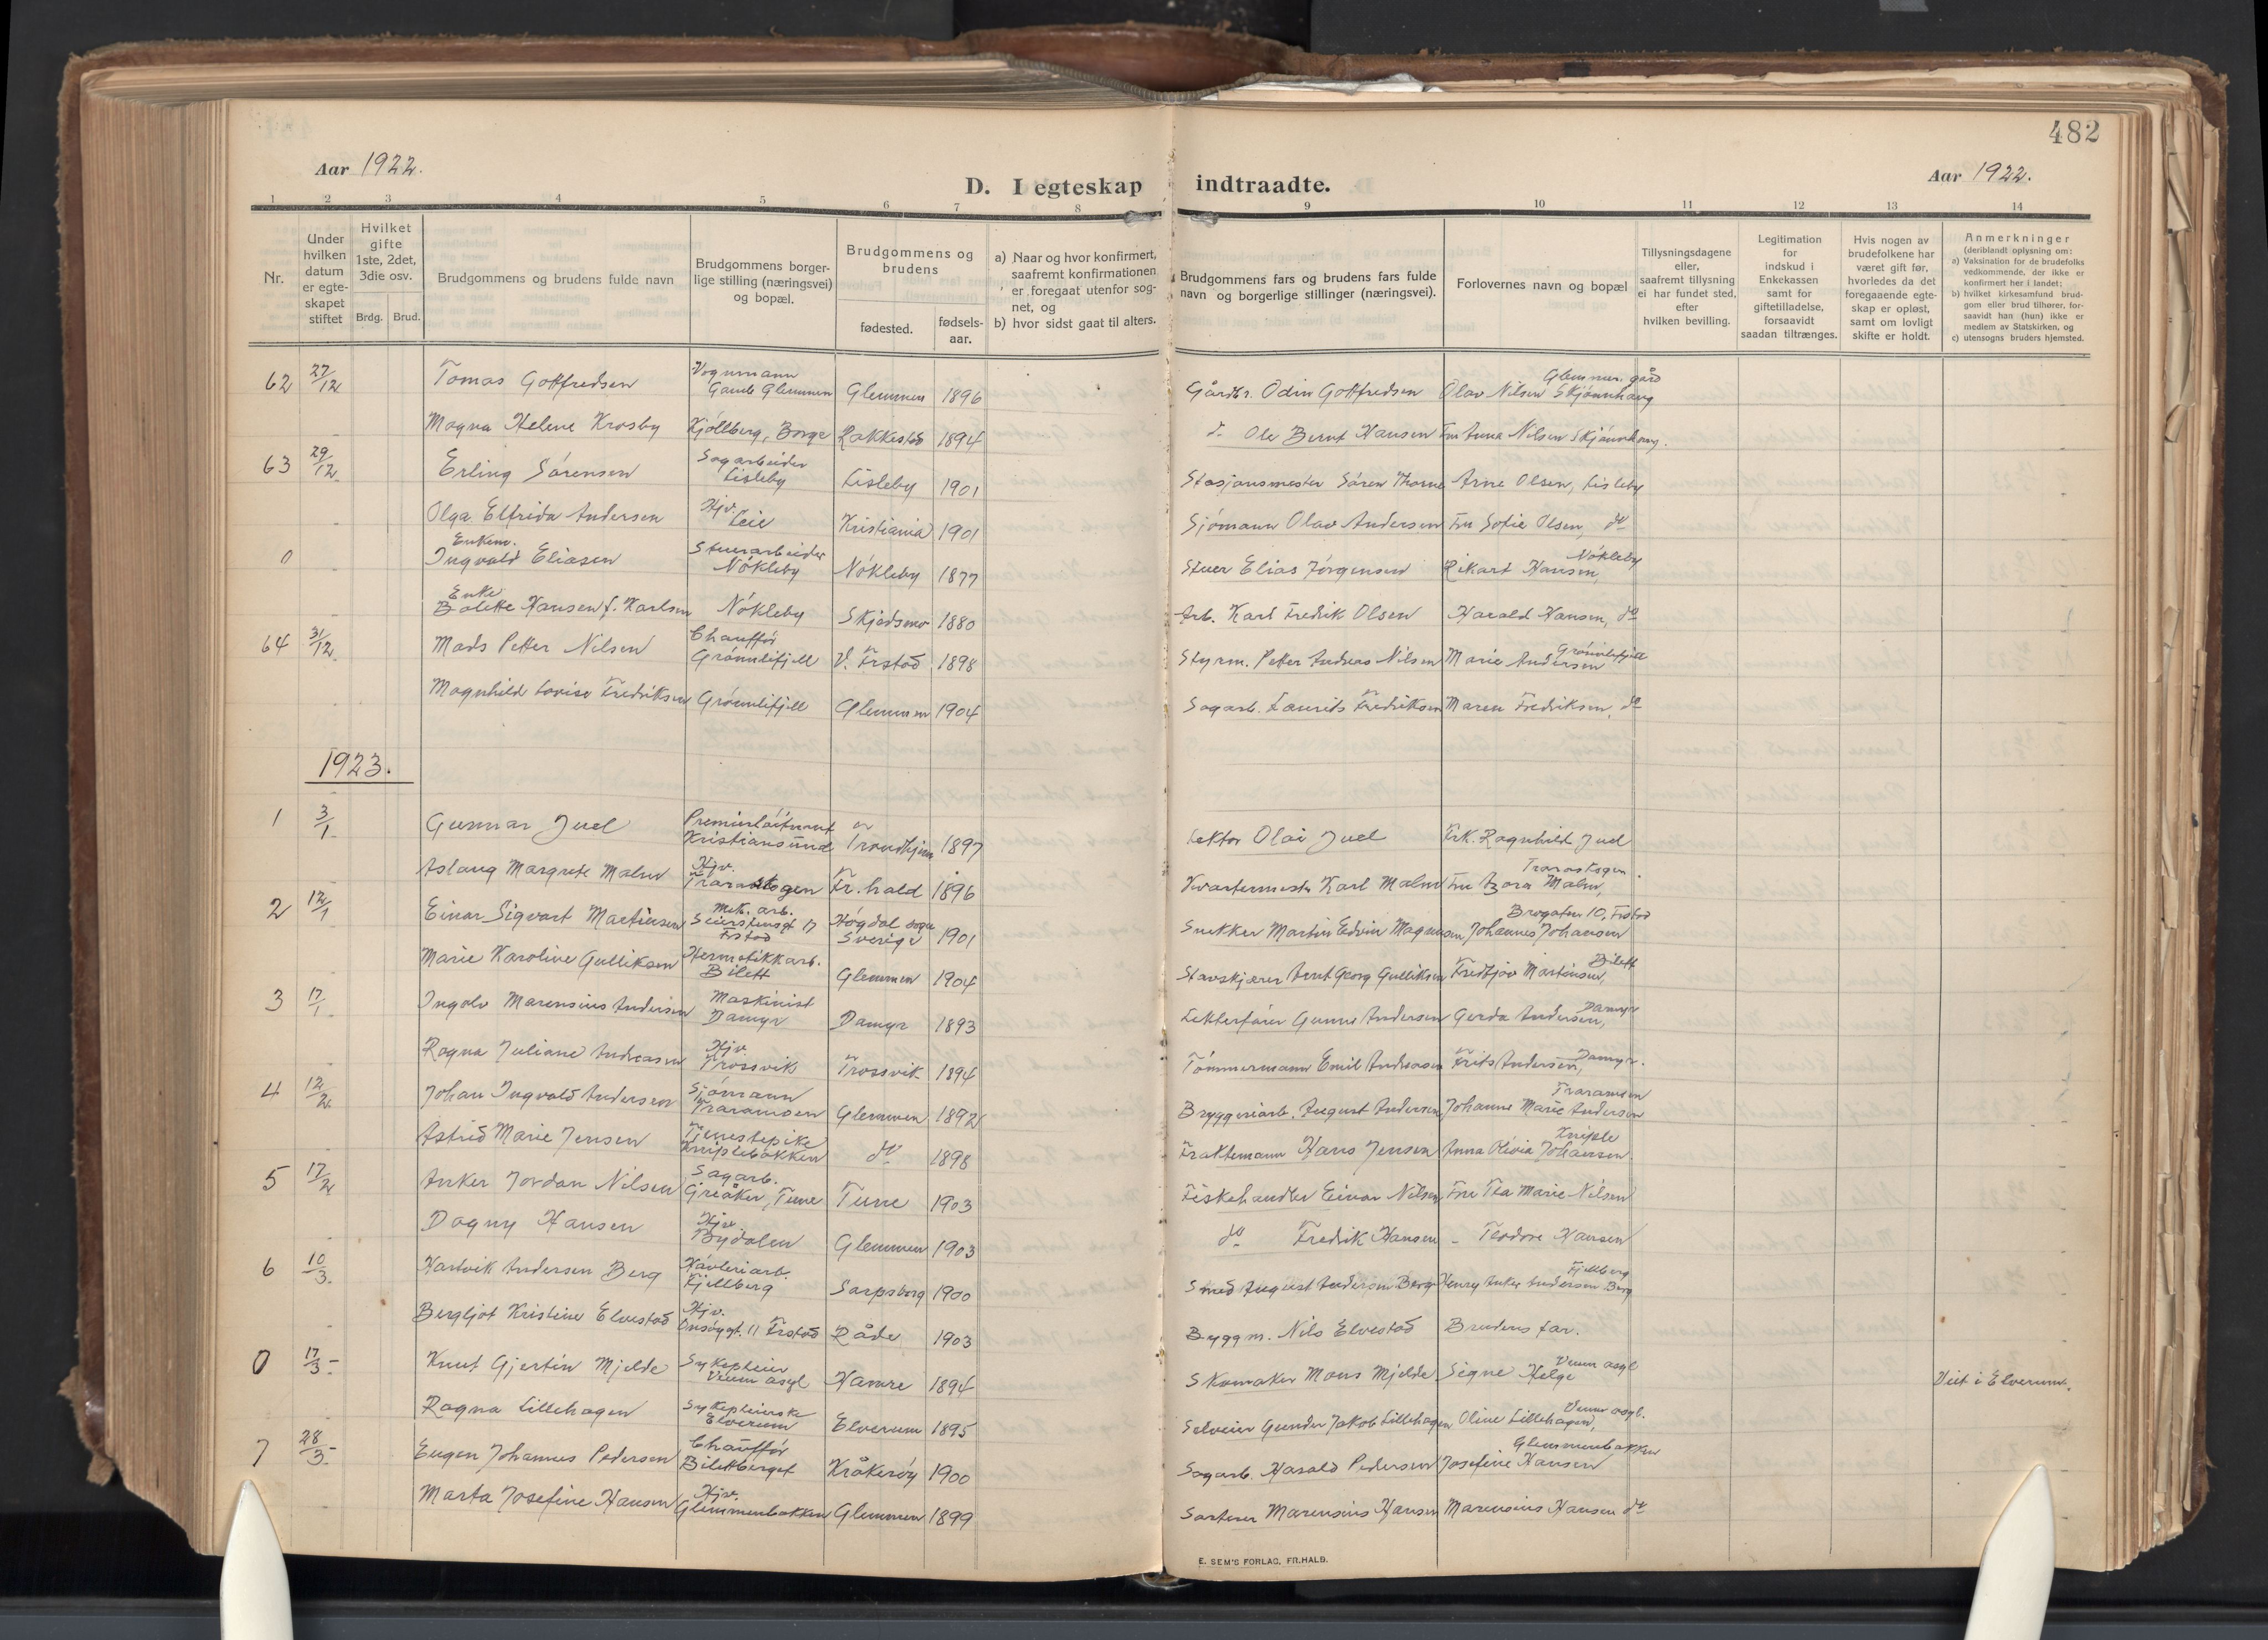 482
Aar 1922.
D. I egteskap indtraadte.
Aar 1922.
1 2 3 4 5 6 7 8 9 10 11 12 13 14
Nr.
Under hvilken datum er egteskapet stiftet
Hvilket gifte 1ste, 2det, 3die osv.
Brdg. Brud.
Brudgommens og brudens fulde navn
Brudgommens borgerlige stilling (næringsvei) og bopæl.
Brudgommens og brudens
fødested.
fødselsaar.
a) Naar og hvor konfirmert, saafremt konfirmationen er foregaat utenfor sognet, og
b) hvor sidst gaat til alters.
Brudgommens fars og brudens fars fulde navn og borgerlige stillinger (næringsvei).
Forlovernes navn og bopæl
Tillysningsdagene eller, saafremt tillysning ei har fundet sted, efter hvilken bevilling.
Legitimation for indskud i Enkekassen samt for giftetilladelse, forsaavidt saadan tiltrænges.
Hvis nogen av brudefolkene har været gift før, hvorledes da det foregaaende egteskap er opløst, samt om lovligt skifte er holdt.
Anmerkninger
(deriblandt oplysning om:
a) Vaksination for de brudefolks vedkommende, der ikke er konfirmert her i landet;
b) hvilket kirkesamfund brudgom eller brud tilhører, forsaavidt han (hun) ikke er medlem av Statskirken, og
c) utensogns bruders hjemsted.
62 27/12 Tomas Gottfredsen Vognmann Gamle Glemmen Glemmen 1896 Gårdbr. Odin Gottfredsen Olav Nilsen Skjønnhaug Glemmen gård
Magna Helene Krosby Kjølberg, Borge Rakkestad 1894 d. Ole Bernt Hansen Fru Anna Nilsen Skjønnhaug.
63 29/12 Erling Sørensen Sagarbeider Lisleby Lisleby 1901 Stasjonsmester Søren Thorne Arne Olsen, Lisleby
Olga Elfrida Andersen Hjv. Leie Kristiania 1901 Sjømann Olav Andersen Fru Sofie Olsen, do
0 Enkem. Ingvald Eliasen Stuerarbeider Nøkleby Nøkleby 1877 Stuer Elias Jørgensen Rikart Hansen, Nøkleby
Enke Bolette Hansen f. Karlsen Nøkleby Skjedsmo 1880 Arb. Karl Fredrik Olsen Harald Hansen, do
64 31/12 Mads Petter Nilsen Chauffør Grønnlifjell V. Frstad 1898 Styrm. Petter Andreas Nilsen Marie Andersen Grønnlifjell
Magnhild Lovise Fredriksen Grønnlifjell Glemmen 1904 Sagarb. Laurits Fredriksen Maren Fredriksen, do
1923.
1 3/1 Gunnar Juel Premierløitnant Kristiansund Trondhjem 1897 Lektor Olai Juel Frk. Ragnhild Juel
Aslaug Margrete Malm Hjv. Traraskogen Fr.hald 1896 Kvartermester Karl Malm Fru Azora Malm, Traraskogen.
2 12/1 Einar Sigvart Martinsen Mek. arb. Seierstensgt 17 Frstad Høgdal sogn Sverige 1901 Snekker Martin Edvin Magnusen Johannes Johansen Brogaten 10, Frstad
Marie Karoline Gulliksen Hermetikkarb. Bilett Glemmen 1904 Stavskjærer Arnt Georg Gulliksen Fredtjov Martinsen, Bilett
3 17/1 Ingolv Marensius Andersen Maskinist Damyr Damyr 1893 Lekterfører Gunne Andersen Gerda Andersen, Damyr
Ragna Juliane Andreasen Hjv Trossvik Trossvik 1894 Tømmermann Emil Andreasen Frits Andersen, Damyr.
4 12/2 Johan Ingvald Andersen Sjømann Traramoen Glemmen 1892 Bryggeriarb. August Andersen Johanne Marie Andersen Traramoen
Astrid Marie Jensen Tjenestepike Kniplebakken do 1898 Fraktemann Hans Jensen Anna Olivia Johansen. Kniple
5 17/2 Anker Jordan Nilsen Sagarb. Greåker, Tune Tune 1903 Fiskehandler Einar Nilsen Fru Tea Marie Nilsen
Dagny Hansen Hjv. Bydalen Glemmen 1903 do Fredrik Hansen - Teodore Hansen
6 10/3. Hartvik Andersen Berg Høvleriarb. Fjellberg Sarpsborg 1900 Smed August Andersen Berg Henry Anker Andersen Berg Fjellberg
Bergljot Kristine Elvestad Hjv. Onsøygt. 11 Frstad Råde 1903 Byggm. Nils Elvestad Brudens far.
0 17/3- Knut Gjertin Mjelde Sykepleier Veum asyl Hamre 1894 Skomaker Mons Mjelde Signe Helge Veum asyl Viet i Elverum.
Ragna Lillehagen Sykepleierske Elverum Elverum 1895 Selveier Gunder Jakob Lillehagen Oline Lillehagen, Veum asyl.
7 28/3- Eugen Johannes Pedersen Chauffør Bilettberget Kråkerøy 1900 Sagarb. Harald Pedersen Josefine Hansen Glemmenbakken
Marta Josefine Hansen Hjv. Glemmenbakken Glemmen 1899 Sorterer Marensius Hansen Marensius Hansen do
E. SEM'S FORLAG, FR.HALD.